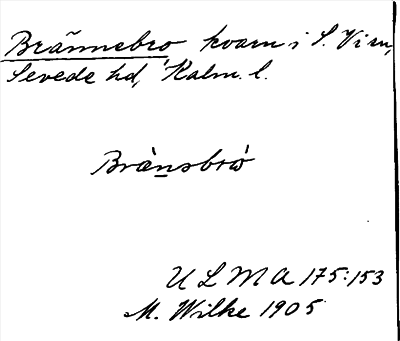 Brännebro kvarn i S. Vi sn,
Sevede hd, Kalm. l.
Brànsbrò
ULMA 175:153
M. Wilke 1905